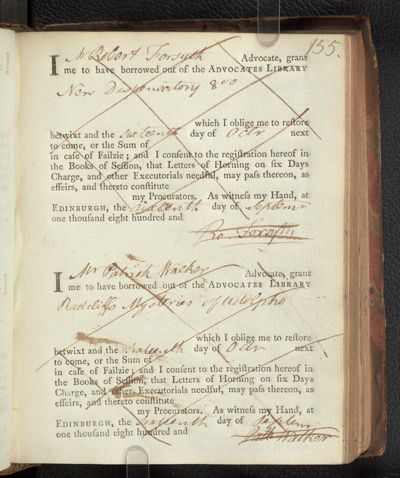 155.
I Mr Robert Forsyth Advocate, grant
me to have borrowed out of the ADVOCATES LIBRARY
New Dispensatory 8vo
which I oblige me to reſtore
betwixt and the Sixteenth day of Octr next
to come, or the Sum of
in caſe of Failzie; and I conſent to the regiſtration hereof in
the Books of Seſſion, that Letters of Horning on ſix Days
Charge, and other Executorials needful, may paſs thereon, as
effeirs, and thereto conſtitute
my Procurators. As witneſs my Hand, at
EDINBURGH, the Sixteenth day of Septemr
one thouſand eight hundred and
Ro. Forsyth
I Mr Patrick Walker Advocate, grant
me to have borrowed out of the ADVOCATES LIBRARY
Radcliffs Mysteries of Udolpho
which I oblige me to reſtore
betwixt and the Sixteenth day of Octr next
to come, or the Sum of
in caſe of Failzie; and I conſent to the regiſtration hereof in
the Books of Seſſion, that Letters of Horning on ſix Days
Charge, and other Executorials needful, may paſs thereon, as
effeirs, and thereto conſtitute
my Procurators. As witneſs my Hand, at
EDINBURGH, the Sixteenth day of Septem
one thouſand eight hundred and
Patk Walker